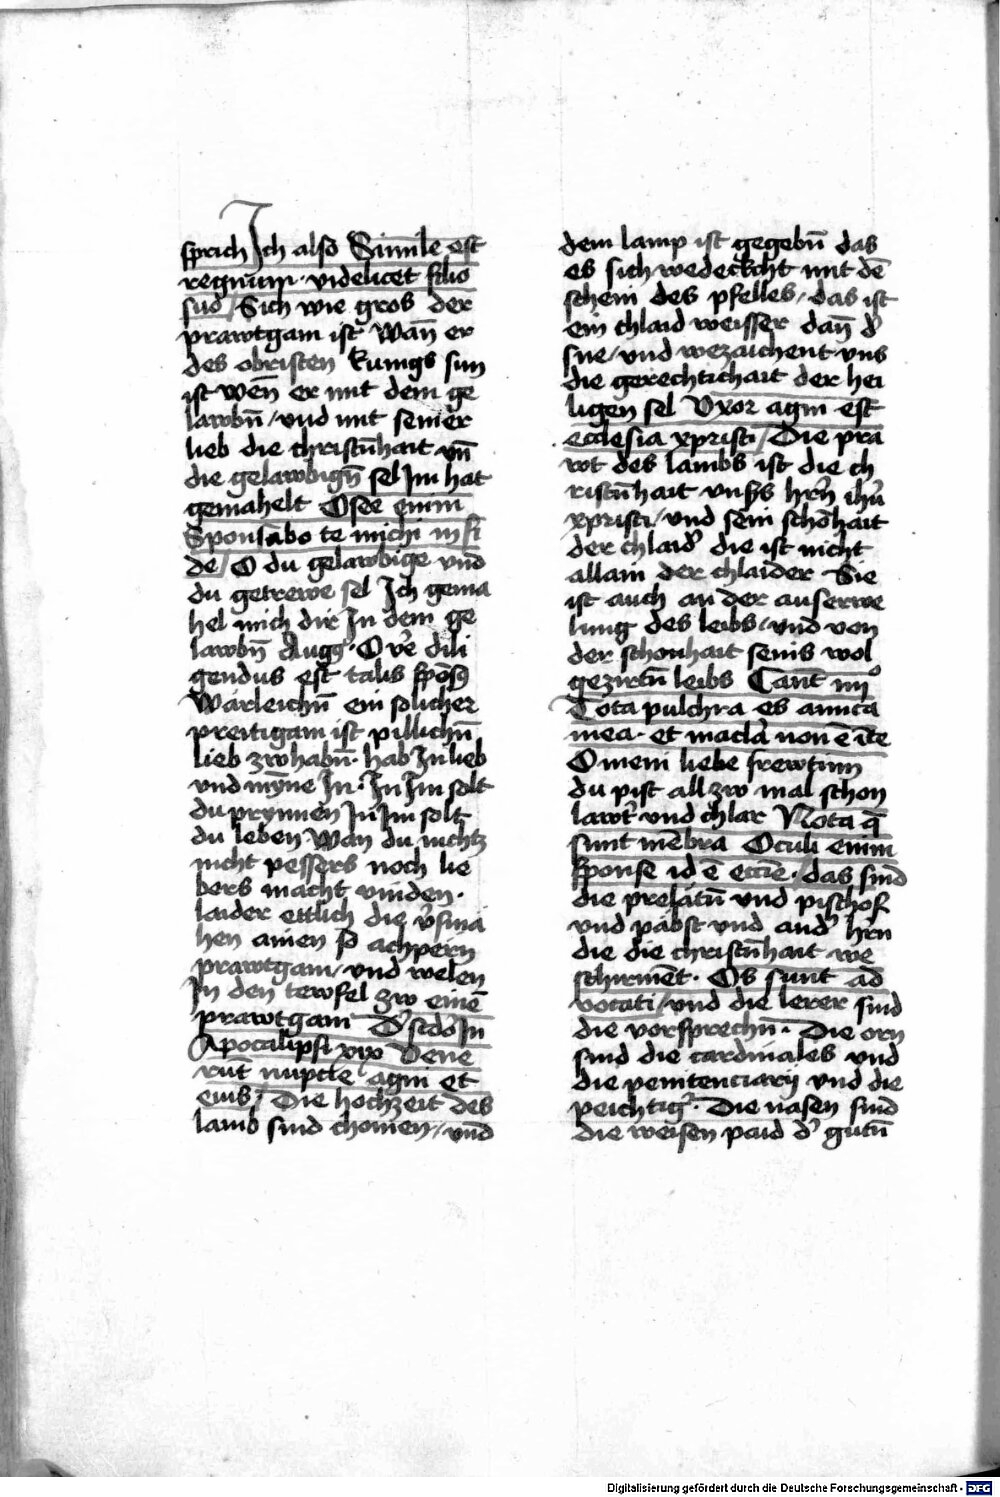 sprich Ich also Simile est
regnum · videlicet filio
suo / Sich wie gros der
prawtgam ist Wan̄ er
des obristen kunigs sun
ist wen̄ er mit dem ge
lawbn̄ / vnd mit seiner
lieb die christn̄hait vn̄
die gelawbign̄ sel Im hat
gemahelt Osee enim
Sponsabo te michi in fi
de / O du gelawbige vnd
du getrewe sel Ich gema
hel mich dir In dem ge
lawbn̄ Augꝰ · O v̄e dili
gendus est talis spōsꝰ
Warleichn̄ ein solicher
preitigam ist pillichn̄
lieb zwhabn̄ · hab In lieb
vnd mȳne In · In Im solt
du prynnen In Im solt
du leben Wan du nichtz
nicht pessers noch lie
bers macht vinden ·
laider ettlich die v̓sma
hen ainen so achpern
prawtgam / vnd welen
In den tewfel zw einē
prawtgam D̓ sc̄do In
Apocalipsi xix Vene
rūt nupcie agni et
eius / Die hochzeit des
lamb sind chomen / vnd
dem lamp ist gegebn̄ das
es sich wedeckcht mit dē
schein des pfelles / das ist
ein chlaid weisser dan̄ d̓
sne / vnd wezaichent vns
die gerechtichait der hei
ligen sel Vxor agni est
ecclesia xpristi / Die pra
wt des lambs ist die ch
ristn̄hait vnsꝰs hr̄n ih̄u
xpristi / vnd sein schōhait
der chlaid̓ die ist nicht
allain der chlaider Sie
ist auch an der auserwe
lung des leibs / vnd von
der schonhait seins wol
gezirtn̄ leibs Cant̄ iiijº
Tota pulchra es amica
mea · et macl̓a non ē ī te
O mein liebe frewtinn
du pist all zw mal schon
lawt̓ vnd chlar Nota q̄
sunt mēbra Oculi enim
sponse id ē ecc̄ie · / das sind
die prelatn̄ vnd pischof
vnd pabst vnd and̓ hr̄n
die die christn̄hait we
schirmēt · Os sunt ad
vocati / vnd die lerer sind
die vorsprechn̄ · Die orn
sind die cardinales vnd
die penitenciarij vnd die
peichtig̓ · Die nasen sind
die weisen paid d̓ gutn̄
Digitalisierung gefördert durch die Deutsche Forschungsgemeinschaft - DFG